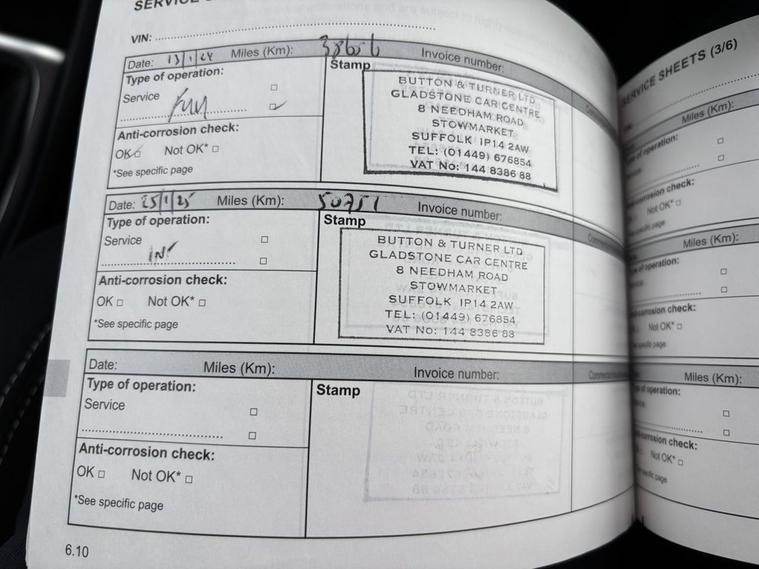 VIN:
Date: 13/1/24 Miles (Km): Invoice number:
Type of operation:
Service
Full
Anti-corrosion check:
OK Not OK*
*See specific page
Stamp
BUTTON & TURNER LTD
GLADSTONE CAR CENTRE
8 NEEDHAM ROAD
STOWMARKET
SUFFOLK IP14 2AW
TEL: (01449) 676854
VAT No: 144 8386 88
Date: 25/1/25 Miles (Km): 50751 Invoice number:
Type of operation:
Service
INT
Anti-corrosion check:
OK Not OK*
*See specific page
Stamp
BUTTON & TURNER LTD
GLADSTONE CAR CENTRE
8 NEEDHAM ROAD
STOWMARKET
SUFFOLK IP14 2AW
TEL: (01449) 676854
VAT No: 144 8386 88
Date: Miles (Km): Invoice number:
Type of operation:
Service
Anti-corrosion check:
OK Not OK*
*See specific page
Stamp
6.10
SERVICE SHEETS (3/6)
Miles (Km):
of operation:
check:
Not OK*
specific page
Miles (Km):
of operation:
check:
Not OK*
specific page
Miles (Km):
of operation:
check:
Not OK*
specific page